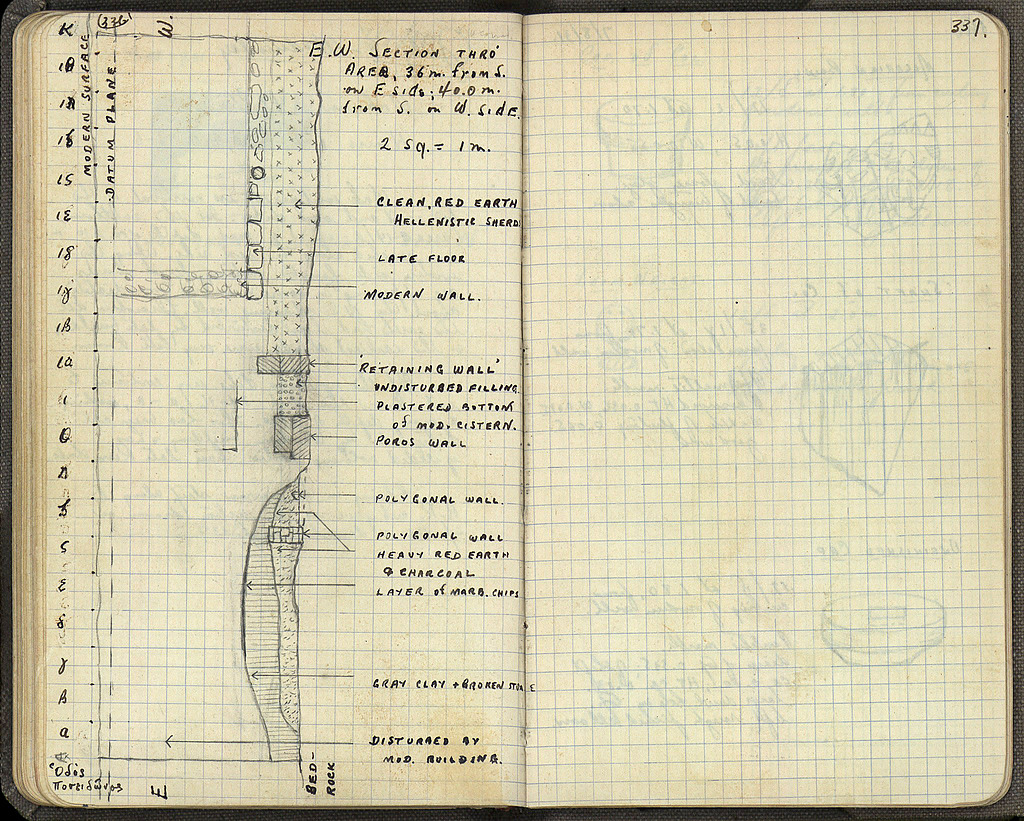 336
W.
337.
K
MODERN SURFACE
DATUM PLANE
E. W. SECTION THRO'
AREA, 36 m. from S.
on E side; 40.0 m.
from S. on W. SIDE.
2 sq. = 1 m.
CLEAN, RED EARTH
HELLENISTIC SHERDS
LATE FLOOR
MODERN WALL.
'RETAINING WALL'
UNDISTURBED FILLING.
PLASTERED BOTTOM
of MOD. CISTERN.
POROS WALL
POLYGONAL WALL.
POLYGONAL WALL
HEAVY RED EARTH
& CHARCOAL
LAYER of MARB. CHIPS
GRAY CLAY + BROKEN STONE
DISTURBED BY
MOD. BUILDING.
ιε
ιδ
ιγ
ιβ
ια
ι
θ
η
ε
δ
γ
β
α
Ὁδὸς
Ποσειδῶνος
E
BED-
ROCK